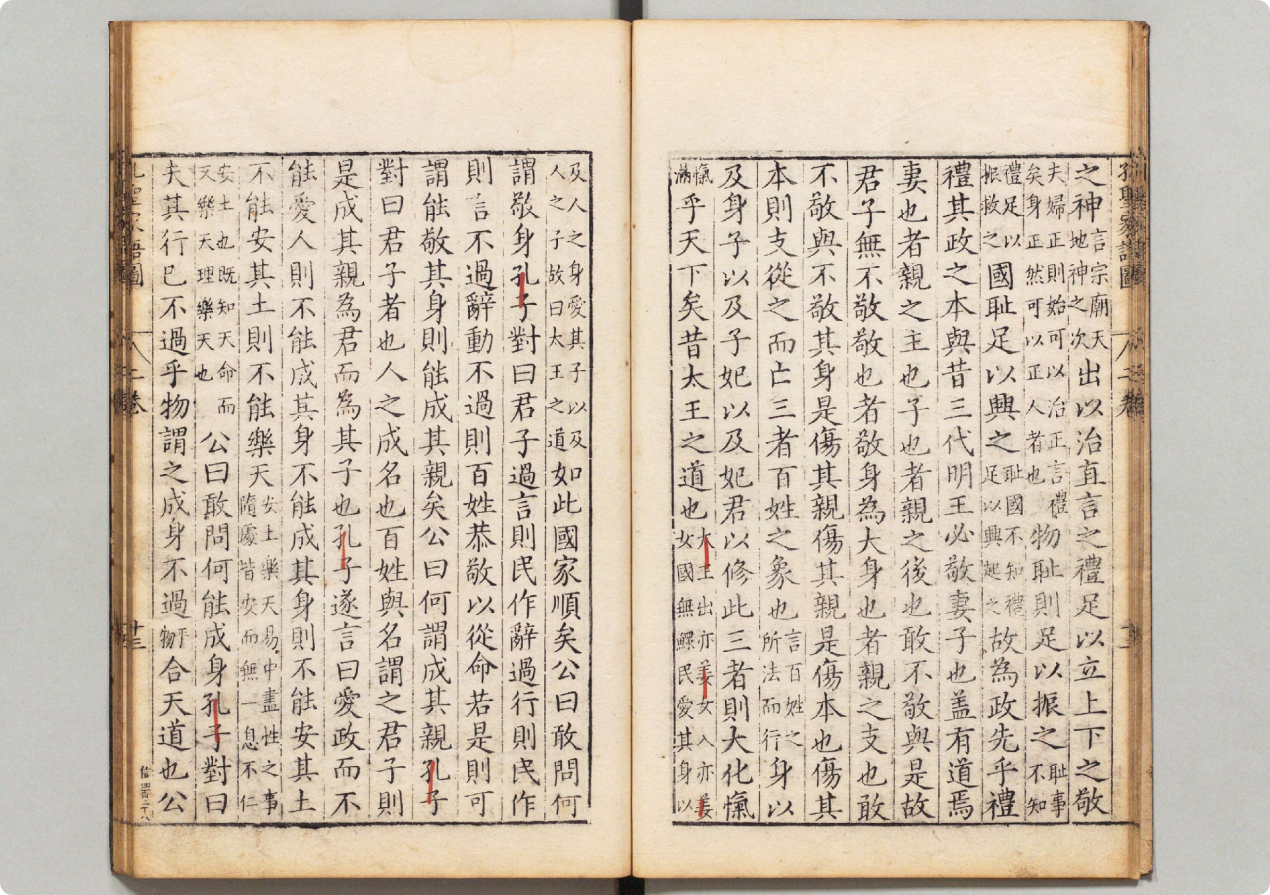 聖家語圖 八之卷
之神言宗廟天地神之次出以治直言之禮足以立上下之敬
夫婦正則始可以治正言禮矣身正然可以正人者也物耻則足以振之耻事不知
禮足以振救之國耻足以興之耻國不知禮足以興起之故為政先乎禮
禮其政之本與昔三代明王必敬妻子也盖有道焉
妻也者親之主也子也者親之後也敢不敬與是故
君子無不敬敬也者敬身為大身也者親之支也敢
不敬與不敬其身是傷其親傷其親是傷本也傷其
本則支從之而亡三者百姓之象也言百姓之所法而行身以
及身子以及子妃以及妃君以修此三者則大化愾
愾滿乎天下矣昔太王之道也太王出亦姜女入亦姜女國無鰥民愛其身以
及人之身愛其子以及人之子故曰太王之道如此國家順矣公曰敢問何
謂敬身孔子對曰君子過言則民作辭過行則民作
則言不過辭動不過則百姓恭敬以從命若是則可
謂能敬其身則能成其親矣公曰何謂成其親孔子
對曰君子者也人之成名也百姓與名謂之君子則
是成其親為君而為其子也孔子遂言曰愛政而不
能愛人則不能成其身不能成其身則不能安其土
不能安其土則不能樂天安土樂天易中盡性之事隨處皆安而無一息不仁
安土也既知天命而又樂天理樂天也公曰敢問何能成身孔子對曰
夫其行已不過乎物謂之成身不過乎物合天道也公